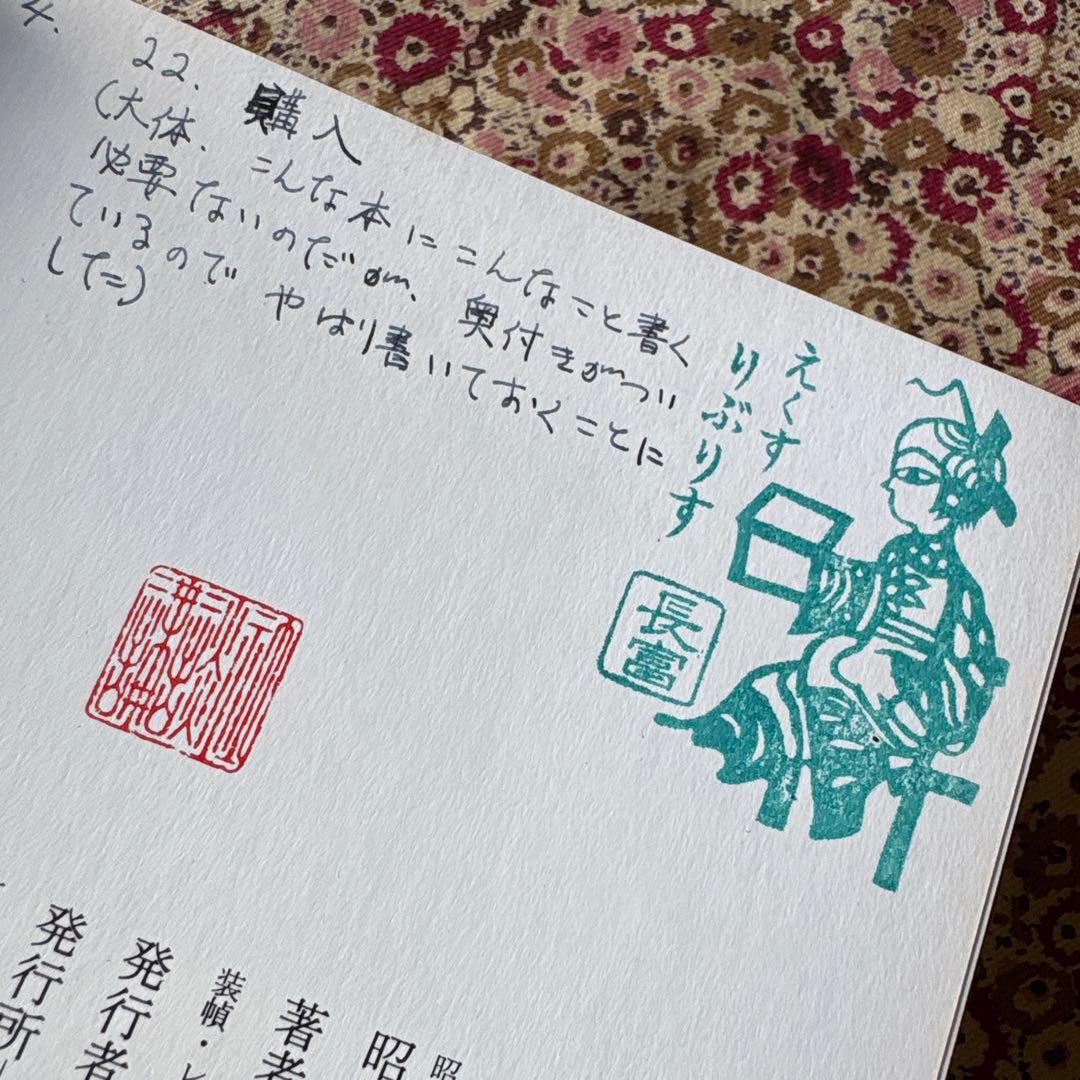 4.
22. 購入
(大体、こんな本にこんなこと書く
必要ないのだが、奥付きがつい
ているのでやはり書いておくことに
した。)
えくす
りぶりす
長富
昭
昭
著者
装幀・レ
発行者
発行所